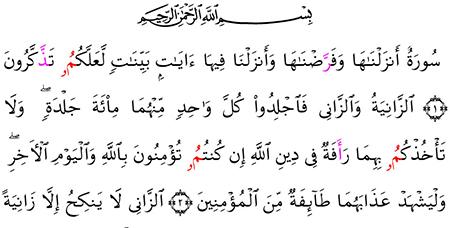 بِسْمِ ٱللَّهِ ٱلرَّحْمَٰنِ ٱلرَّحِيمِ
سُورَةٌ أَنزَلْنَٰهَا وَفَرَّضْنَٰهَا وَأَنزَلْنَا فِيهَا ءَايَٰتِۭ بَيِّنَٰتٖ لَّعَلَّكُمُۥ تَذَّكَّرُونَ
۝١ ٱلزَّانِيَةُ وَٱلزَّانِى فَٱجْلِدُوا۟ كُلَّ وَٰحِدٖ مِّنْهُمَا مِا۟ئَةَ جَلْدَةٖۖ وَلَا
تَأْخُذْكُمُۥ بِهِمَا رَأَفَةٞ فِى دِينِ ٱللَّهِ إِن كُنتُمُۥ تُؤْمِنُونَ بِٱللَّهِ وَٱلْيَوْمِ ٱلْأَٰخِرِۖ
وَلْيَشْهَدْ عَذَابَهُمَا طَآئِفَةٞ مِّنَ ٱلْمُؤْمِنِينَ ۝٢ ٱلزَّانِى لَا يَنكِحُ إِلَّا زَانِيَةً